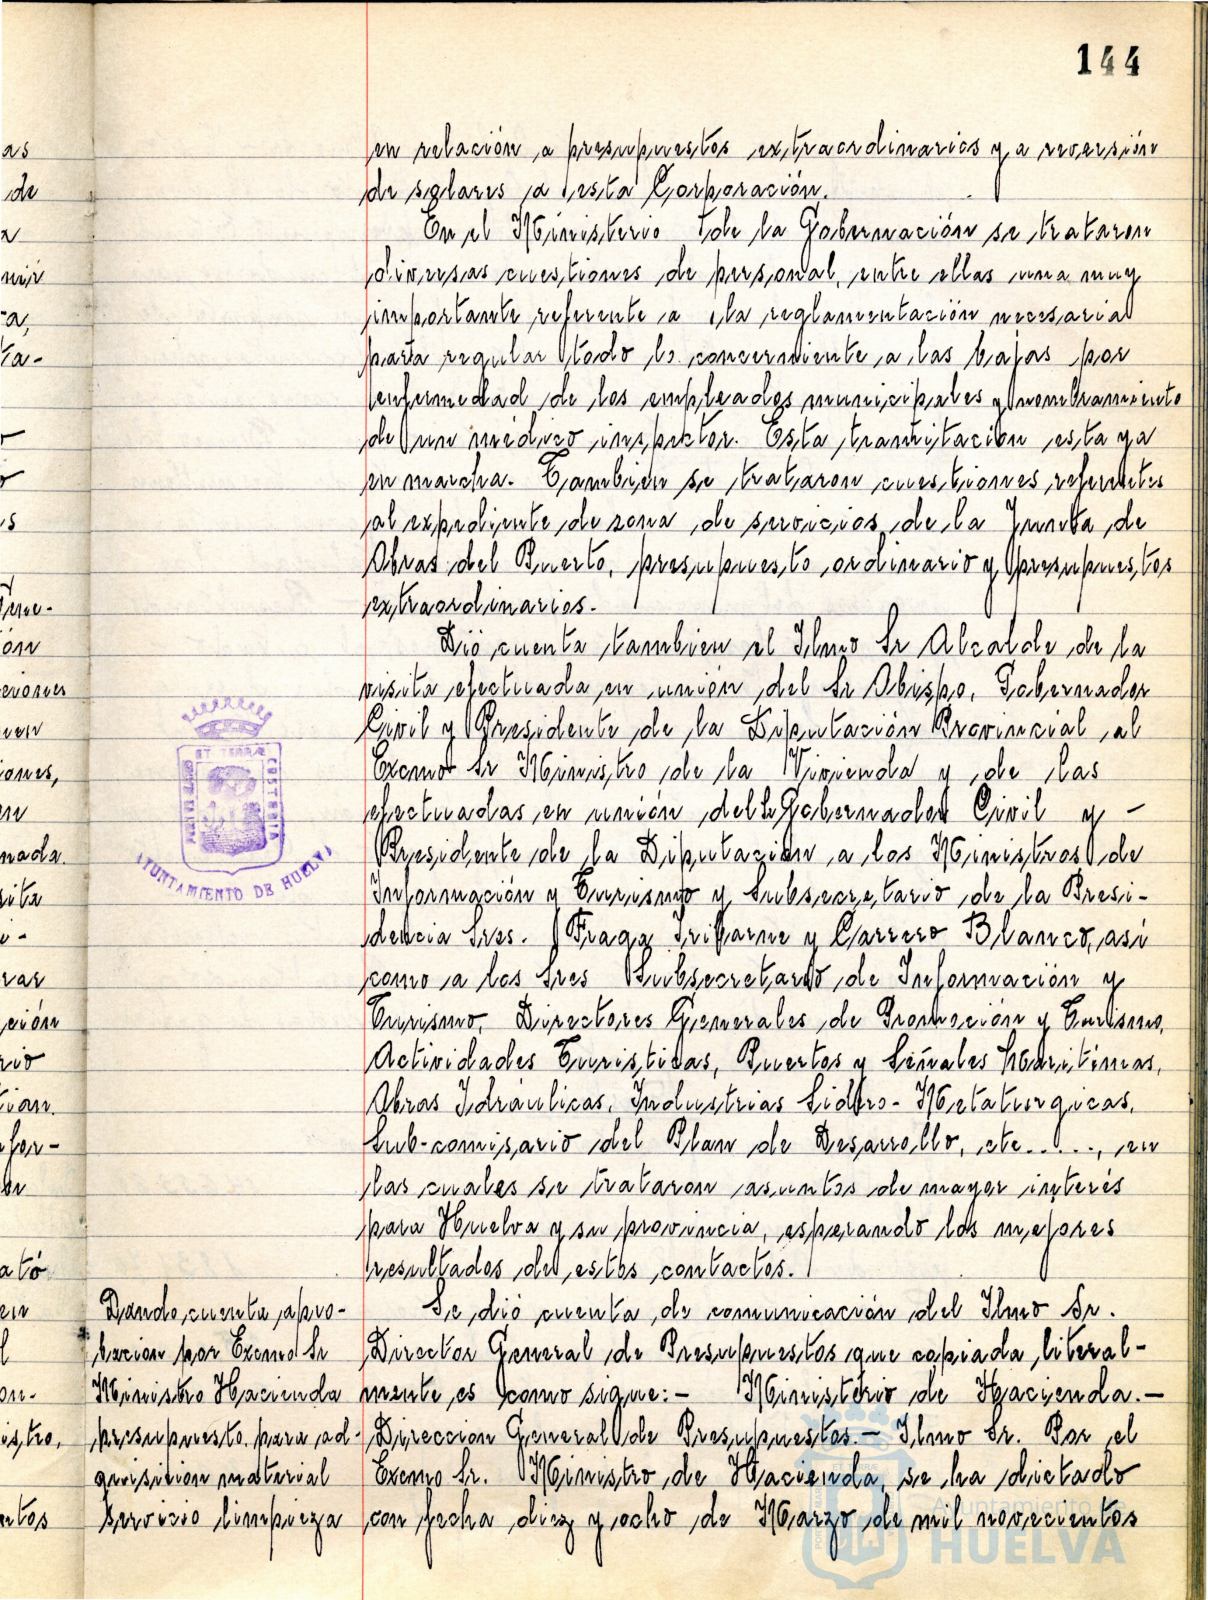 144
en relación a presupuestos extraordinarios y a reversión
de solares a esta Corporación.
En el Ministerio de la Gobernación se trataron
diversas cuestiones de personal, entre ellas una muy
importante referente a la reglamentación necesaria
para regular todo lo concerniente a las bajas por
enfermedad de los empleados municipales y nombramiento
de un médico inspector. Esta tramitación esta ya
en marcha. Tambien se trataron cuestiones referentes
al expediente de zona de servicios de la Junta de
Obras del Puerto, presupuesto ordinario y presupuestos
extraordinarios.
Dió cuenta tambien el Ilmo Sr Alcalde de la
visita efectuada en unión del Sr Obispo, Gobernador
Civil y Presidente de la Diputación Provincial al
Excmo Sr Ministro de la Vivienda y de las
efectuadas en unión del Gobernador Civil y -
Presidente de la Diputación a los Ministros de
Información y Turismo y Subsecretario de la Presi-
dencia Sres. Fraga Iribarne y Carrero Blanco, así
como a los Sres Subsecretario de Información y
Turismo, Directores Generales de Promoción y Turismo,
Actividades Turisticas, Puertos y Señales Maritimas,
Obras Idráulicas, Industrias Sidero-Metalurgicas,
Sub-comisario del Plan de Desarrollo, etc....., en
las cuales se trataron asuntos de mayor interés
para Huelva y su provincia, esperando los mejores
resultados de estos contactos.
Dando cuenta apro-
bación por Excmo Sr
Ministro Hacienda
presupuesto para ad-
quisición material
Servicio limpieza
Se dió cuenta de comunicación del Ilmo Sr.
Director General de Presupuestos que copiada literal-
mente es como sigue:- Ministerio de Hacienda.-
Dirección General de Presupuestos.- Ilmo Sr. Por el
Excmo Sr. Ministro de Hacienda, se ha dictado
con fecha diez y ocho de Marzo de mil novecientos
AYUNTAMIENTO DE HUELVA
Ayuntamiento de
HUELVA